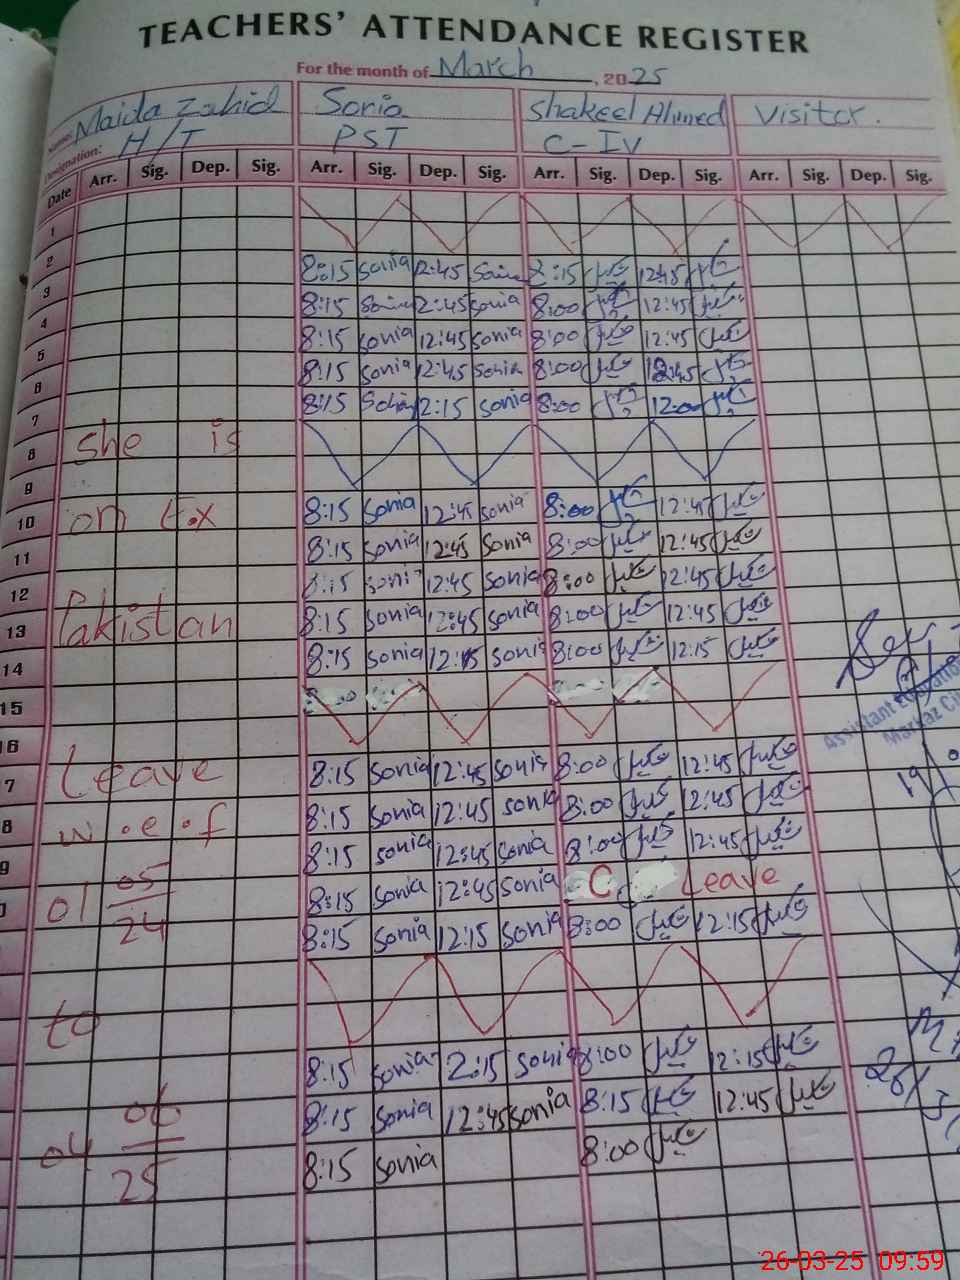 TEACHERS' ATTENDANCE REGISTER
For the month of March, 2025
Name: Maida Zahid Sonia Shakeel Ahmed Visitor.
Designation: H/T PST C-IV
Date Arr. Sig. Dep. Sig. Arr. Sig. Dep. Sig. Arr. Sig. Dep. Sig. Arr. Sig. Dep. Sig.
1
2
8:15 Sonia 12:45 Sonia 8:15 شکیل 12:45 شکیل
3
8:15 Sonia 2:45 Sonia 8:00 شکیل 12:45 شکیل
4
8:15 Sonia 12:45 Sonia 8:00 شکیل 12:45 شکیل
5
8:15 Sonia 12:45 Sonia 8:00 شکیل 12:45 شکیل
6
8:15 Sonia 2:15 Sonia 8:00 شکیل 12:00 شکیل
7
she is
8
9
on Ex 8:15 Sonia 12:45 Sonia 8:00 شکیل 12:45 شکیل
10
8:15 Sonia 12:45 Sonia 8:00 شکیل 12:45 شکیل
11
8:15 Soni 12:45 Sonia 8:00 شکیل 12:45 شکیل
12
Pakistan 8:15 Sonia 12:45 Sonia 8:00 شکیل 12:45 شکیل
13
8:15 Sonia 12:15 Sonia 8:00 شکیل 12:15 شکیل
14
15
16
Leave 8:15 Sonia 12:45 Sonia 8:00 شکیل 12:45 شکیل
7
w.e.f 8:15 Sonia 12:45 Sonia 8:00 شکیل 12:45 شکیل
8
8:15 Sonia 12:45 Sonia 8:00 شکیل 12:45 شکیل
9
01 05/24 8:15 Sonia 12:45 Sonia C Leave
8:15 Sonia 12:15 Sonia 8:00 شکیل 12:15 شکیل
to
8:15 Sonia 2:15 Sonia 8:00 شکیل 12:15 شکیل
8:15 Sonia 12:45 Sonia 8:15 شکیل 12:45 شکیل
04 06/25 8:15 Sonia 8:00 شکیل
Assistant Education
Markaz
19
26/3
26-03-25 09:59